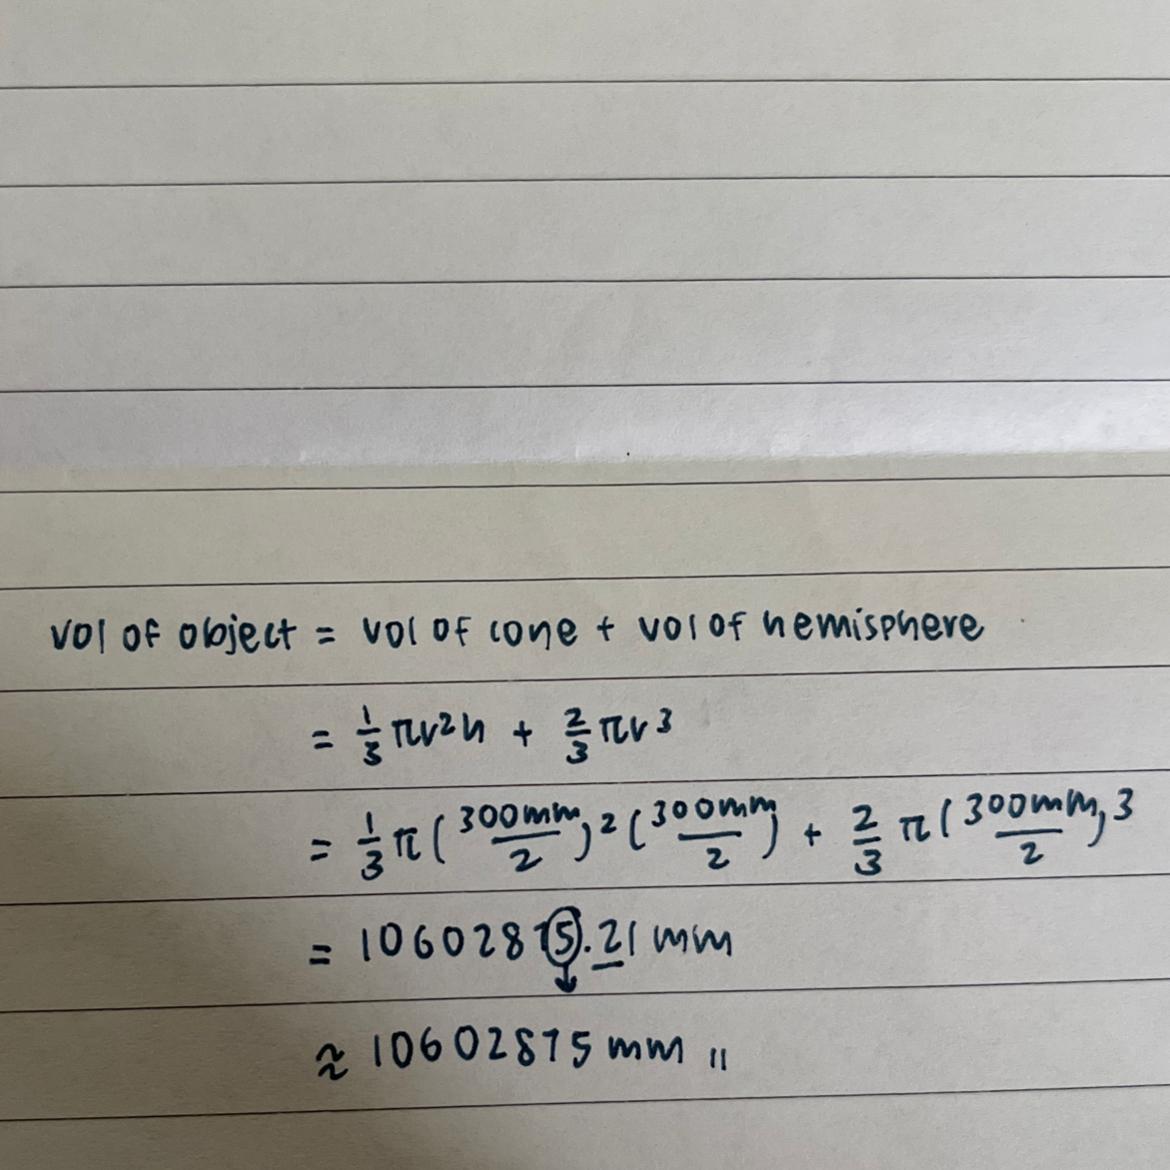 vol of object = vol of cone + vol of hemisphere
= 1/3 πr²h + 2/3 πr³
= 1/3 π(300mm/2)²(300mm/2) + 2/3 π(300mm/2)³
= 10602875.21 mm
≈ 10602875 mm "